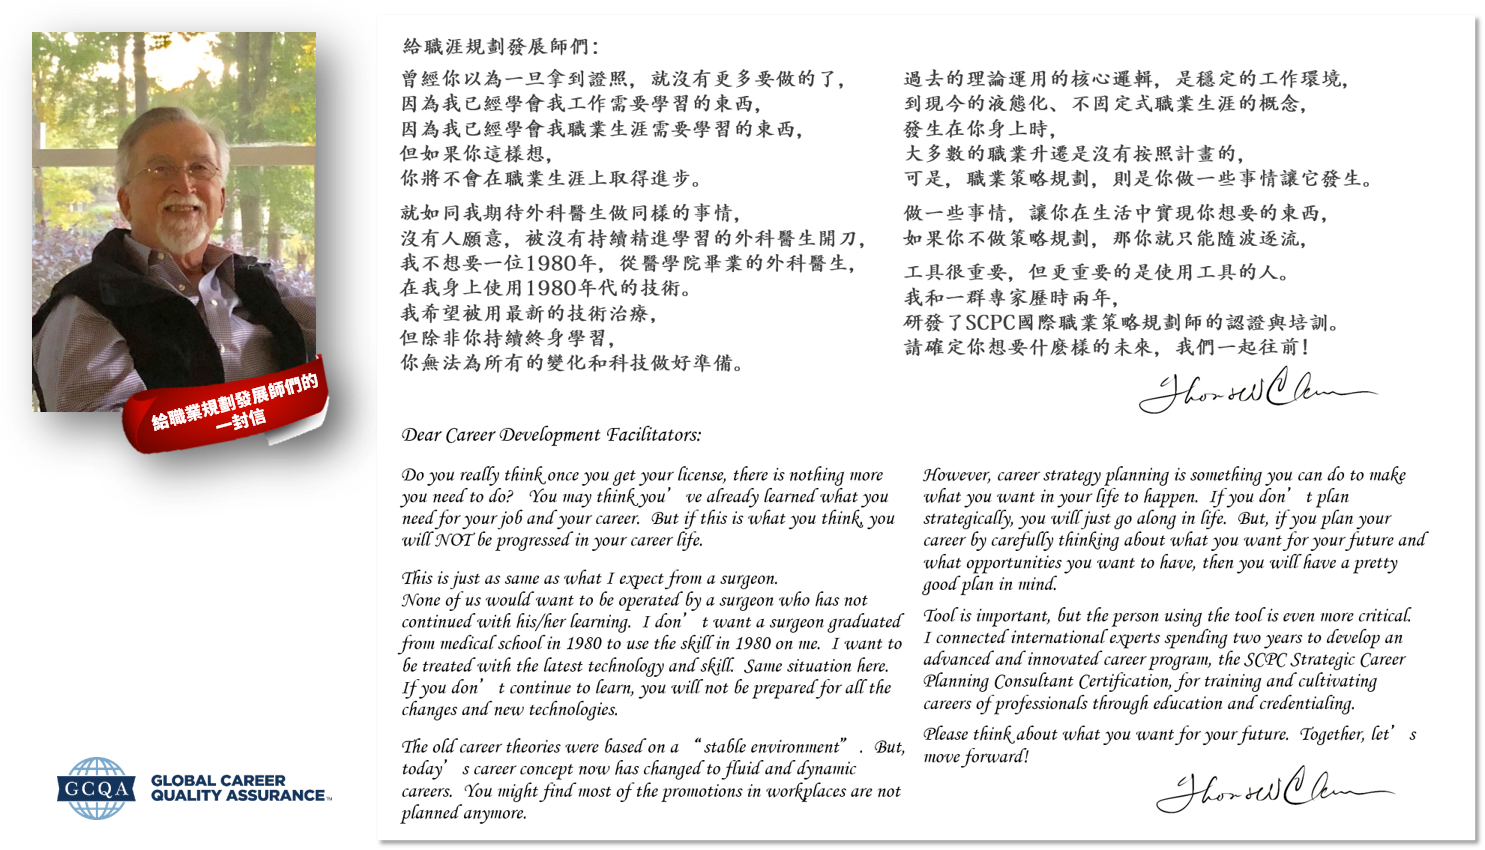 給職業規劃發展師們的
一封信
GCQA
GLOBAL CAREER
QUALITY ASSURANCE™
給職涯規劃發展師們：
曾經你以為一旦拿到證照，就沒有更多要做的了，
因為我已經學會我工作需要學習的東西，
因為我已經學會我職業生涯需要學習的東西，
但如果你這樣想，
你將不會在職業生涯上取得進步。
就如同我期待外科醫生做同樣的事情，
沒有人願意，被沒有持續精進學習的外科醫生開刀，
我不想要一位1980年，從醫學院畢業的外科醫生，
在我身上使用1980年代的技術。
我希望被用最新的技術治療，
但除非你持續終身學習，
你無法為所有的變化和科技做好準備。
過去的理論運用的核心邏輯，是穩定的工作環境，
到現今的液態化、不固定式職業生涯的概念，
發生在你身上時，
大多數的職業升遷是沒有按照計畫的，
可是，職業策略規劃，則是你做一些事情讓它發生。
做一些事情，讓你在生活中實現你想要的東西，
如果你不做策略規劃，那你就只能隨波逐流，
工具很重要，但更重要的是使用工具的人。
我和一群專家歷時兩年，
研發了SCPC國際職業策略規劃師的認證與培訓。
請確定你想要什麼樣的未來，我們一起往前！
Dear Career Development Facilitators:
Do you really think once you get your license, there is nothing more
you need to do?  You may think you’ve already learned what you
need for your job and your career.  But if this is what you think, you
will NOT be progressed in your career life.
This is just as same as what I expect from a surgeon.
None of us would want to be operated by a surgeon who has not
continued with his/her learning.  I don’t want a surgeon graduated
from medical school in 1980 to use the skill in 1980 on me.  I want to
be treated with the latest technology and skill.  Same situation here.
If you don’t continue to learn, you will not be prepared for all the
changes and new technologies.
The old career theories were based on a “stable environment”.  But,
today’s career concept now has changed to fluid and dynamic
careers.  You might find most of the promotions in workplaces are not
planned anymore.
However, career strategy planning is something you can do to make
what you want in your life to happen.  If you don’t plan
strategically, you will just go along in life.  But, if you plan your
career by carefully thinking about what you want for your future and
what opportunities you want to have, then you will have a pretty
good plan in mind.
Tool is important, but the person using the tool is even more critical.
I connected international experts spending two years to develop an
advanced and innovated career program, the SCPC Strategic Career
Planning Consultant Certification, for training and cultivating
careers of professionals through education and credentialing.
Please think about what you want for your future.  Together, let’s
move forward!